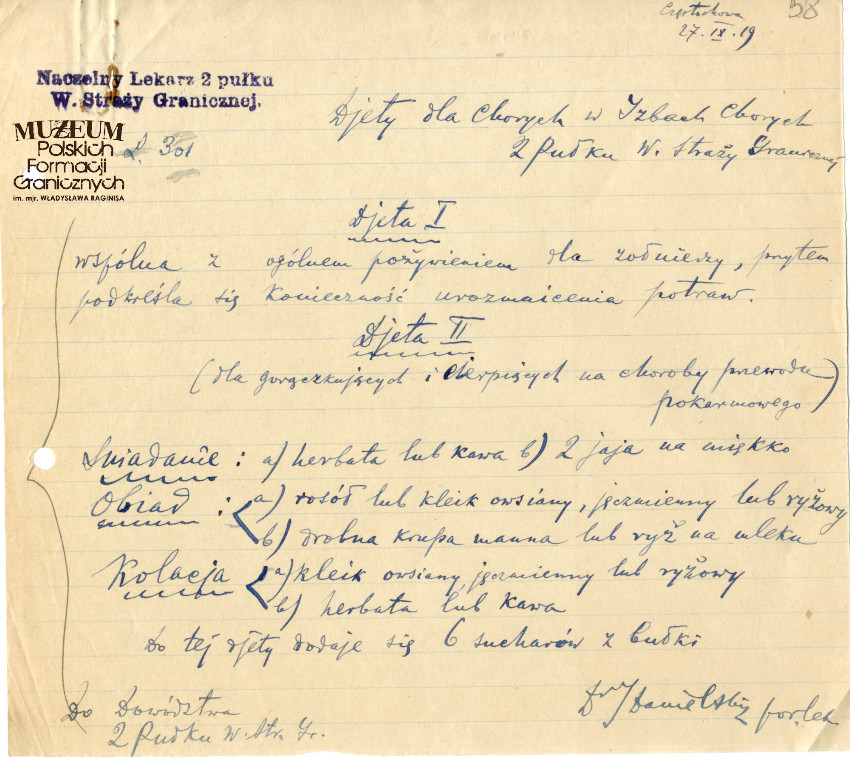 58
Częstochowa
27.IX.19
Naczelny Lekarz 2 pułku
W. Straży Granicznej.
L. 301
MUZEUM
Polskich
Formacji
Granicznych
im. mjr. WŁADYSŁAWA RAGINISA
Djety dla chorych w Izbach chorych
2 Pułku W. Straży Granicznej
Djeta I
wspólna z ogólnem pożywieniem dla żołnierzy, przytem
podkreśla się konieczność urozmaicenia potraw.
Djeta II
(dla gorączkujących i cierpiących na choroby przewodu
pokarmowego)
Śniadanie : a) herbata lub kawa b) 2 jaja na miękko
Obiad : a) rosół lub kleik owsiany, jęczmienny lub ryżowy
b) drobna krupa manna lub ryż na mleku
Kolacja a) kleik owsiany, jęczmienny lub ryżowy
b) herbata lub kawa
Do tej djety dodaje się 6 sucharów z bułki
Dr J Danielski por. lek
Do Dowództwa
2 Pułku W. Str. Gr.